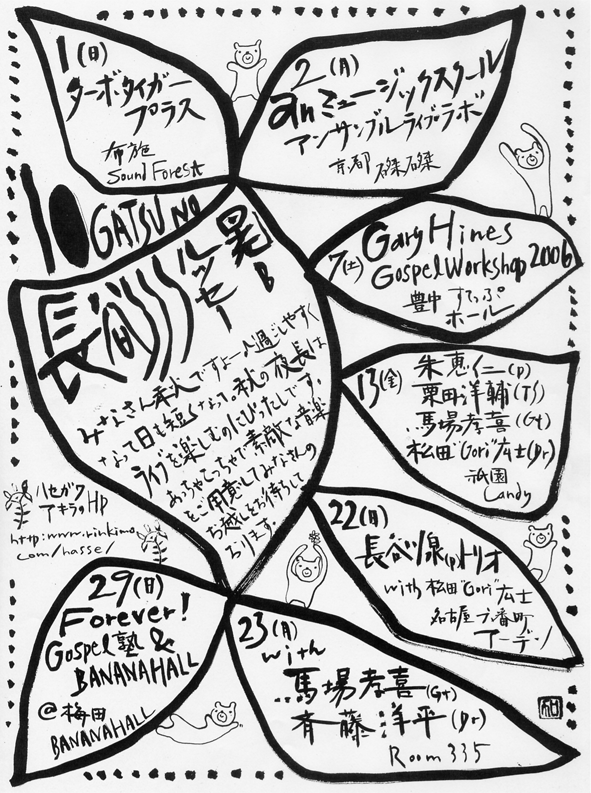 1(日)
ターボタイガー
プラス
布施
Sound Forest
2(月)
anミュージックスクール
アンサンブルライブ・ラボ
京都 磔磔
10
GATSU NO
長谷川
晃
B
7(土)
Gary Hines
Gospel Workshop 2006
豊中 すてっぷ
ホール
みなさん秋ですよー♪過ごしやすく
なって日も短くなって。秋の夜長は
ライブを楽しむのにぴったしです。
あっちゃこっちゃで素敵な音楽
をご用意してみなさんの
お越しをお待ちして
おります。
13(金)
朱恵仁(P)
栗田洋輔(TS)
馬場孝喜(Gt)
松田"Gori"広士(Dr)
祇園
Candy
ハセガワ
アキラのHP
http:www.rinkimo.
com/hasse/
22(日)
長谷川泉(P)トリオ
with 松田"Gori"広士
名古屋 六番町
アーデン
29(日)
Forever!
Gospel塾&
BANANAHALL
@梅田
BANANAHALL
23(月)
with
馬場孝喜(Gt)
斉藤洋平(Dr)
Room 335